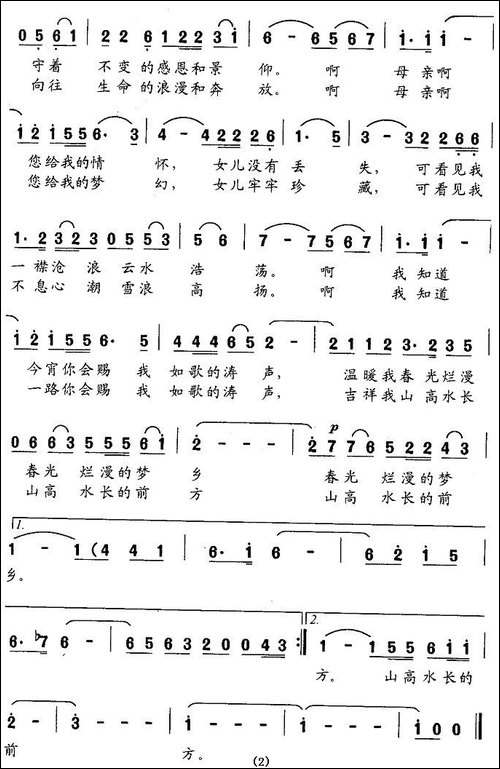 0 5 6 1 | 2 2 6 1 2 2 2 3 1 | 6 - 6 5 6 7 | 1· 1 1 - |
守着 不变的感恩和景 仰。 啊 母亲啊
向往 生命的浪漫和奔 放。 啊 母亲啊
1 2 1 5 5 6· 3 | 4 - 4 2 2 2 6 | 1· 5 | 3 - 3 2 2 6 6 |
您给我的情 怀, 女儿没有丢 失, 可看见我
您给我的梦 幻, 女儿牢牢珍 藏, 可看见我
1· 2 3 2 3 0 5 5 3 | 5 6 | 7 - 7 5 6 7 | 1· 1 1 - |
一襟沧 浪 云水 浩 荡。 啊 我知道
不息心 潮 雪浪 高 扬。 啊 我知道
1 2 1 5 5 6· 5 | 4 4 4 6 5 2 - | 2 1 1 2 3· 2 3 5 |
今宵你会赐 我 如歌的涛 声, 温暖我春 光烂漫
一路你会赐 我 如歌的涛 声, 吉祥我山 高水长
0 6 6 3 5 5 5 6 1 | 2 - - - | p 2 7 7 6 5 2 2 4 3 |
春光 烂漫的梦 乡 春光 烂漫的梦
山高 水长的前 方 山高 水长的前
1.
1 - 1 (4 4 1 | 6· 1 6 - | 6 2 1 5 |
乡。
2.
6· ♭7 6 - | 6 5 6 3 2 0 0 4 3 :‖ 1 - 1 5 5 6 1 1 |
方。 山高水长的
2 - 3 - - - | 1 - - - | 1 - - - | 1 0 0 ‖
前 方。
(2)